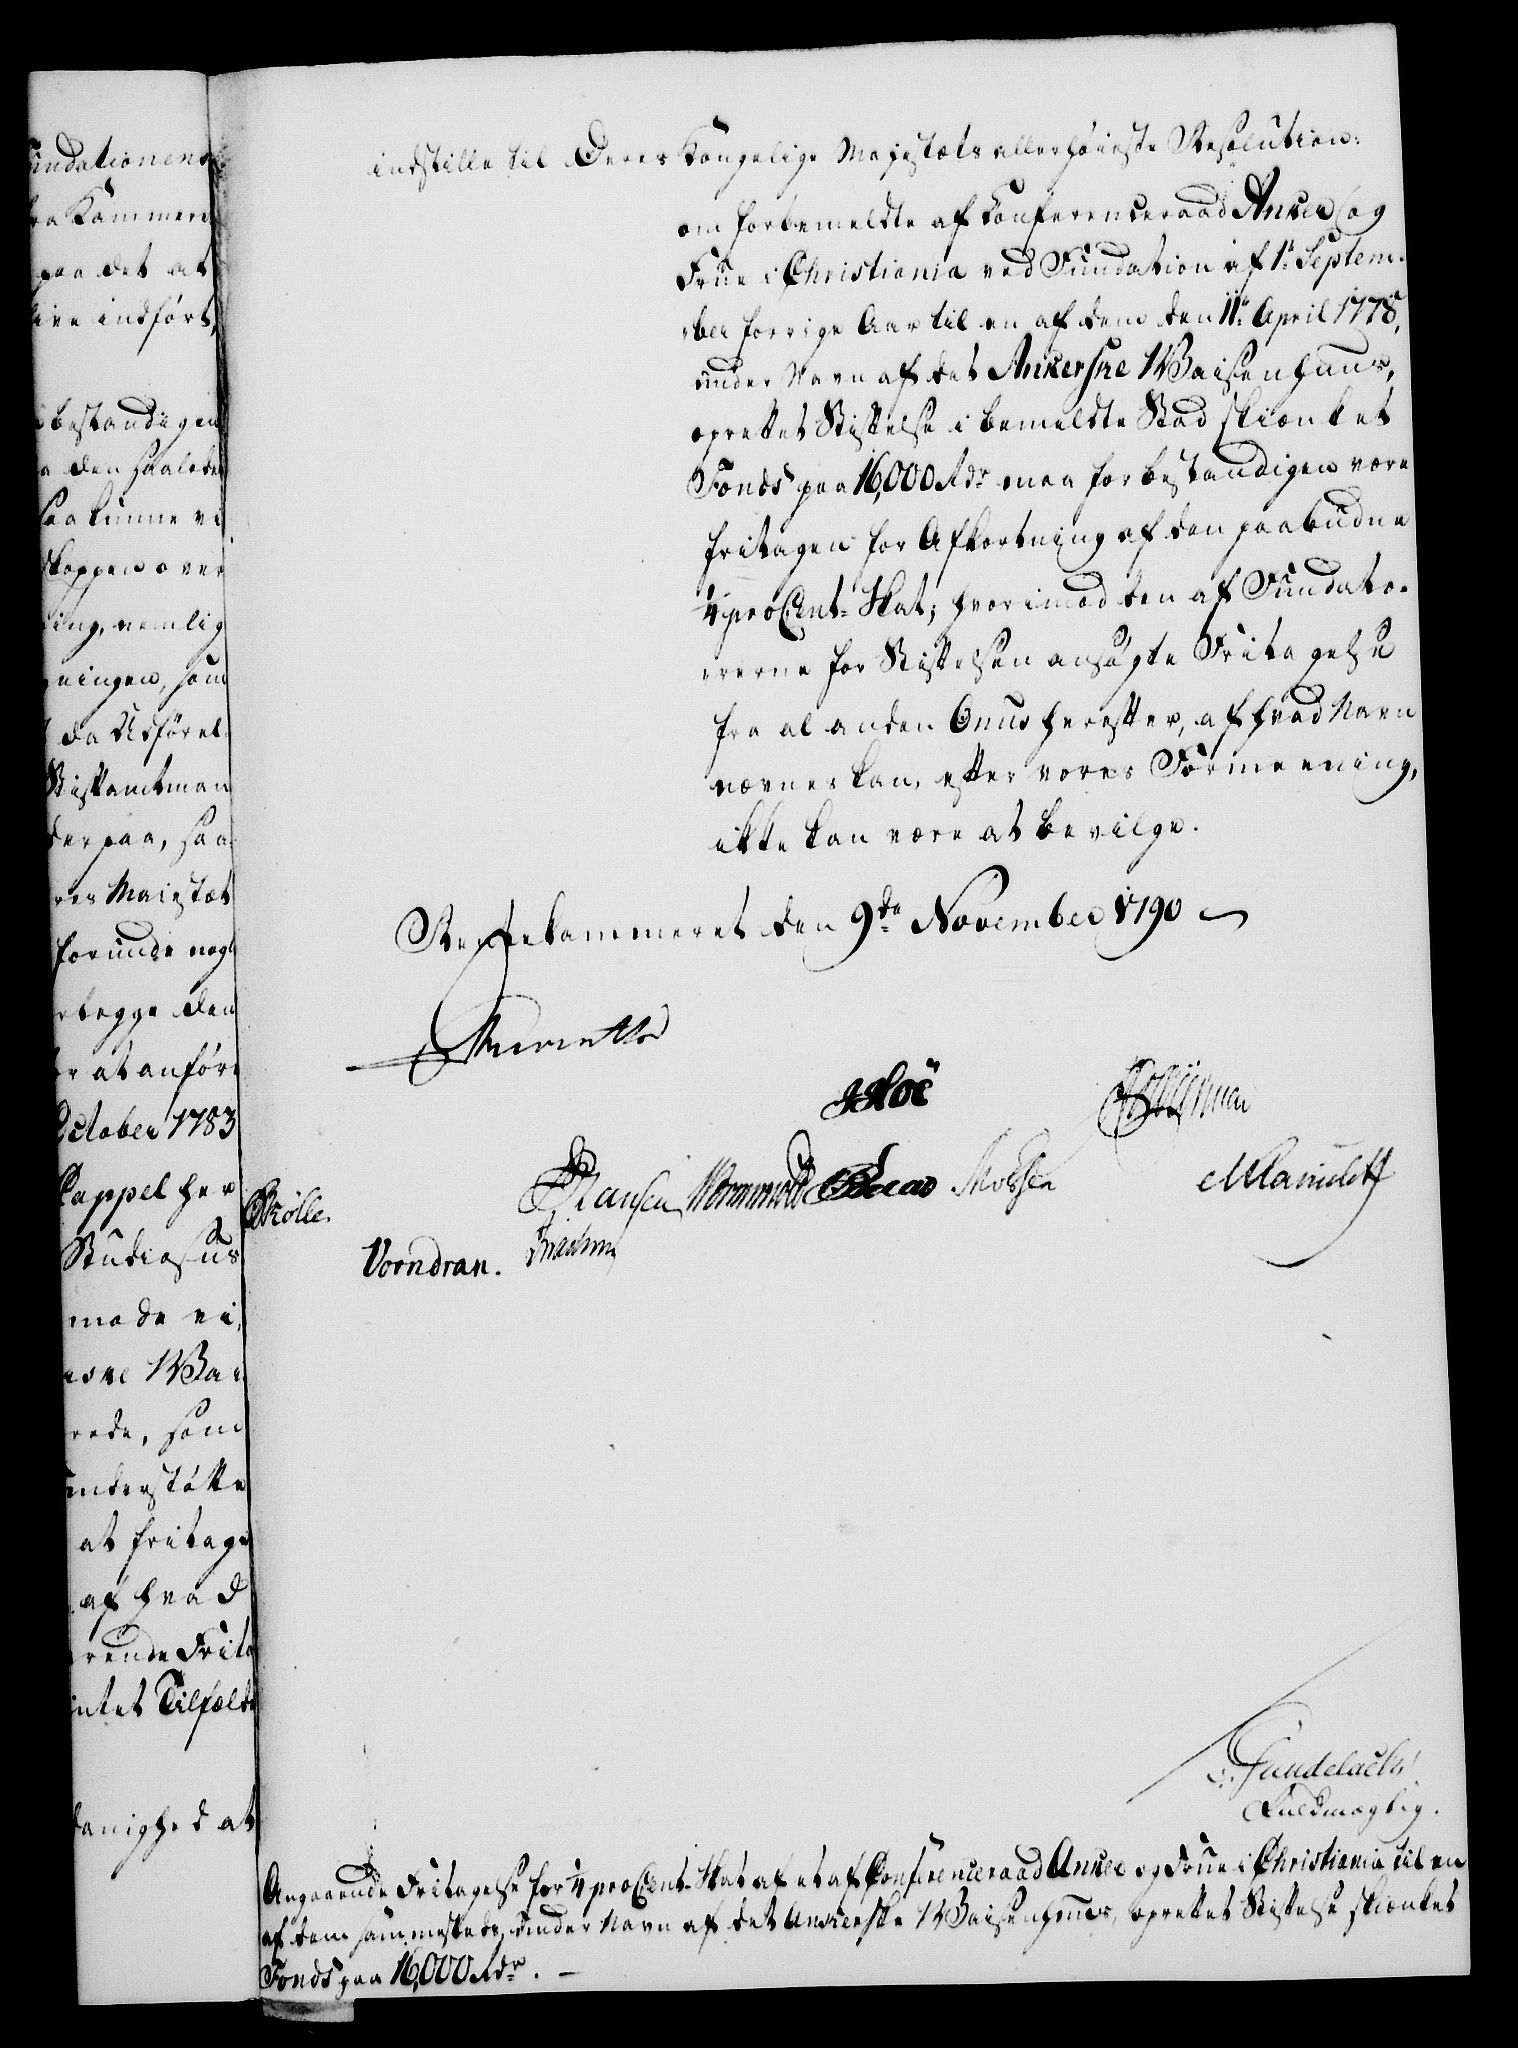 undationens
ra Kammere
paa det at
live indført,
bestandigen
a den saalede
saa kunne vi
skappen over
ing, nemlig
ningen, som
da Udførel-
Stiftamtman
derpaa, saa
res Maiestæt
forunde nogl
begge den
r at anføre
October 1783
Cappel her
Studiosus
made vi,
rske Wai
rede, som
understøtte
at fritage
af hvad
rende Frita
intet Tilfælde
danighed at
indstille til Deres Kongelige Majestæts allerhøieste Resolution:
om forbemeldte af Conferenceraad Anker og
Frue i Christiania ved Fundation af 1te Septem-
ber forrige Aar til en af dem den 11te April 1778,
under Navn af det Ankerske Waisenhuus,
oprettet Stiftelse i bemeldte Stad skienket
Fonds paa 16,000 Rdr maa for bestandigen være
fritagen for Afkortning af den paabudne
1/4 proCent-Skat; hvorimod den af Fundato-
rerne for Stiftelsen ansøgte Fritagelse
fra al anden Onus herefter, af hvad Navn
nævnes kan, efter vores Formeening,
ikke kan være at bevilge.
Rentekammeret den 9de November 1790
Reventlow
Hoë
Hansen Wormskiold Mossin
Krölle.
Vorndran.
Gundelach
Fuldmægtig.
Angaaende Fritagelse for 1/4 proCent-Skat af et af Conferenceraad Anker og Frue i Christiania til en
af dem sammesteds, under Navn af det Ankerske Waisenhuus, oprettet Stiftelse skienket
Fonds paa 16,000 Rdr. -